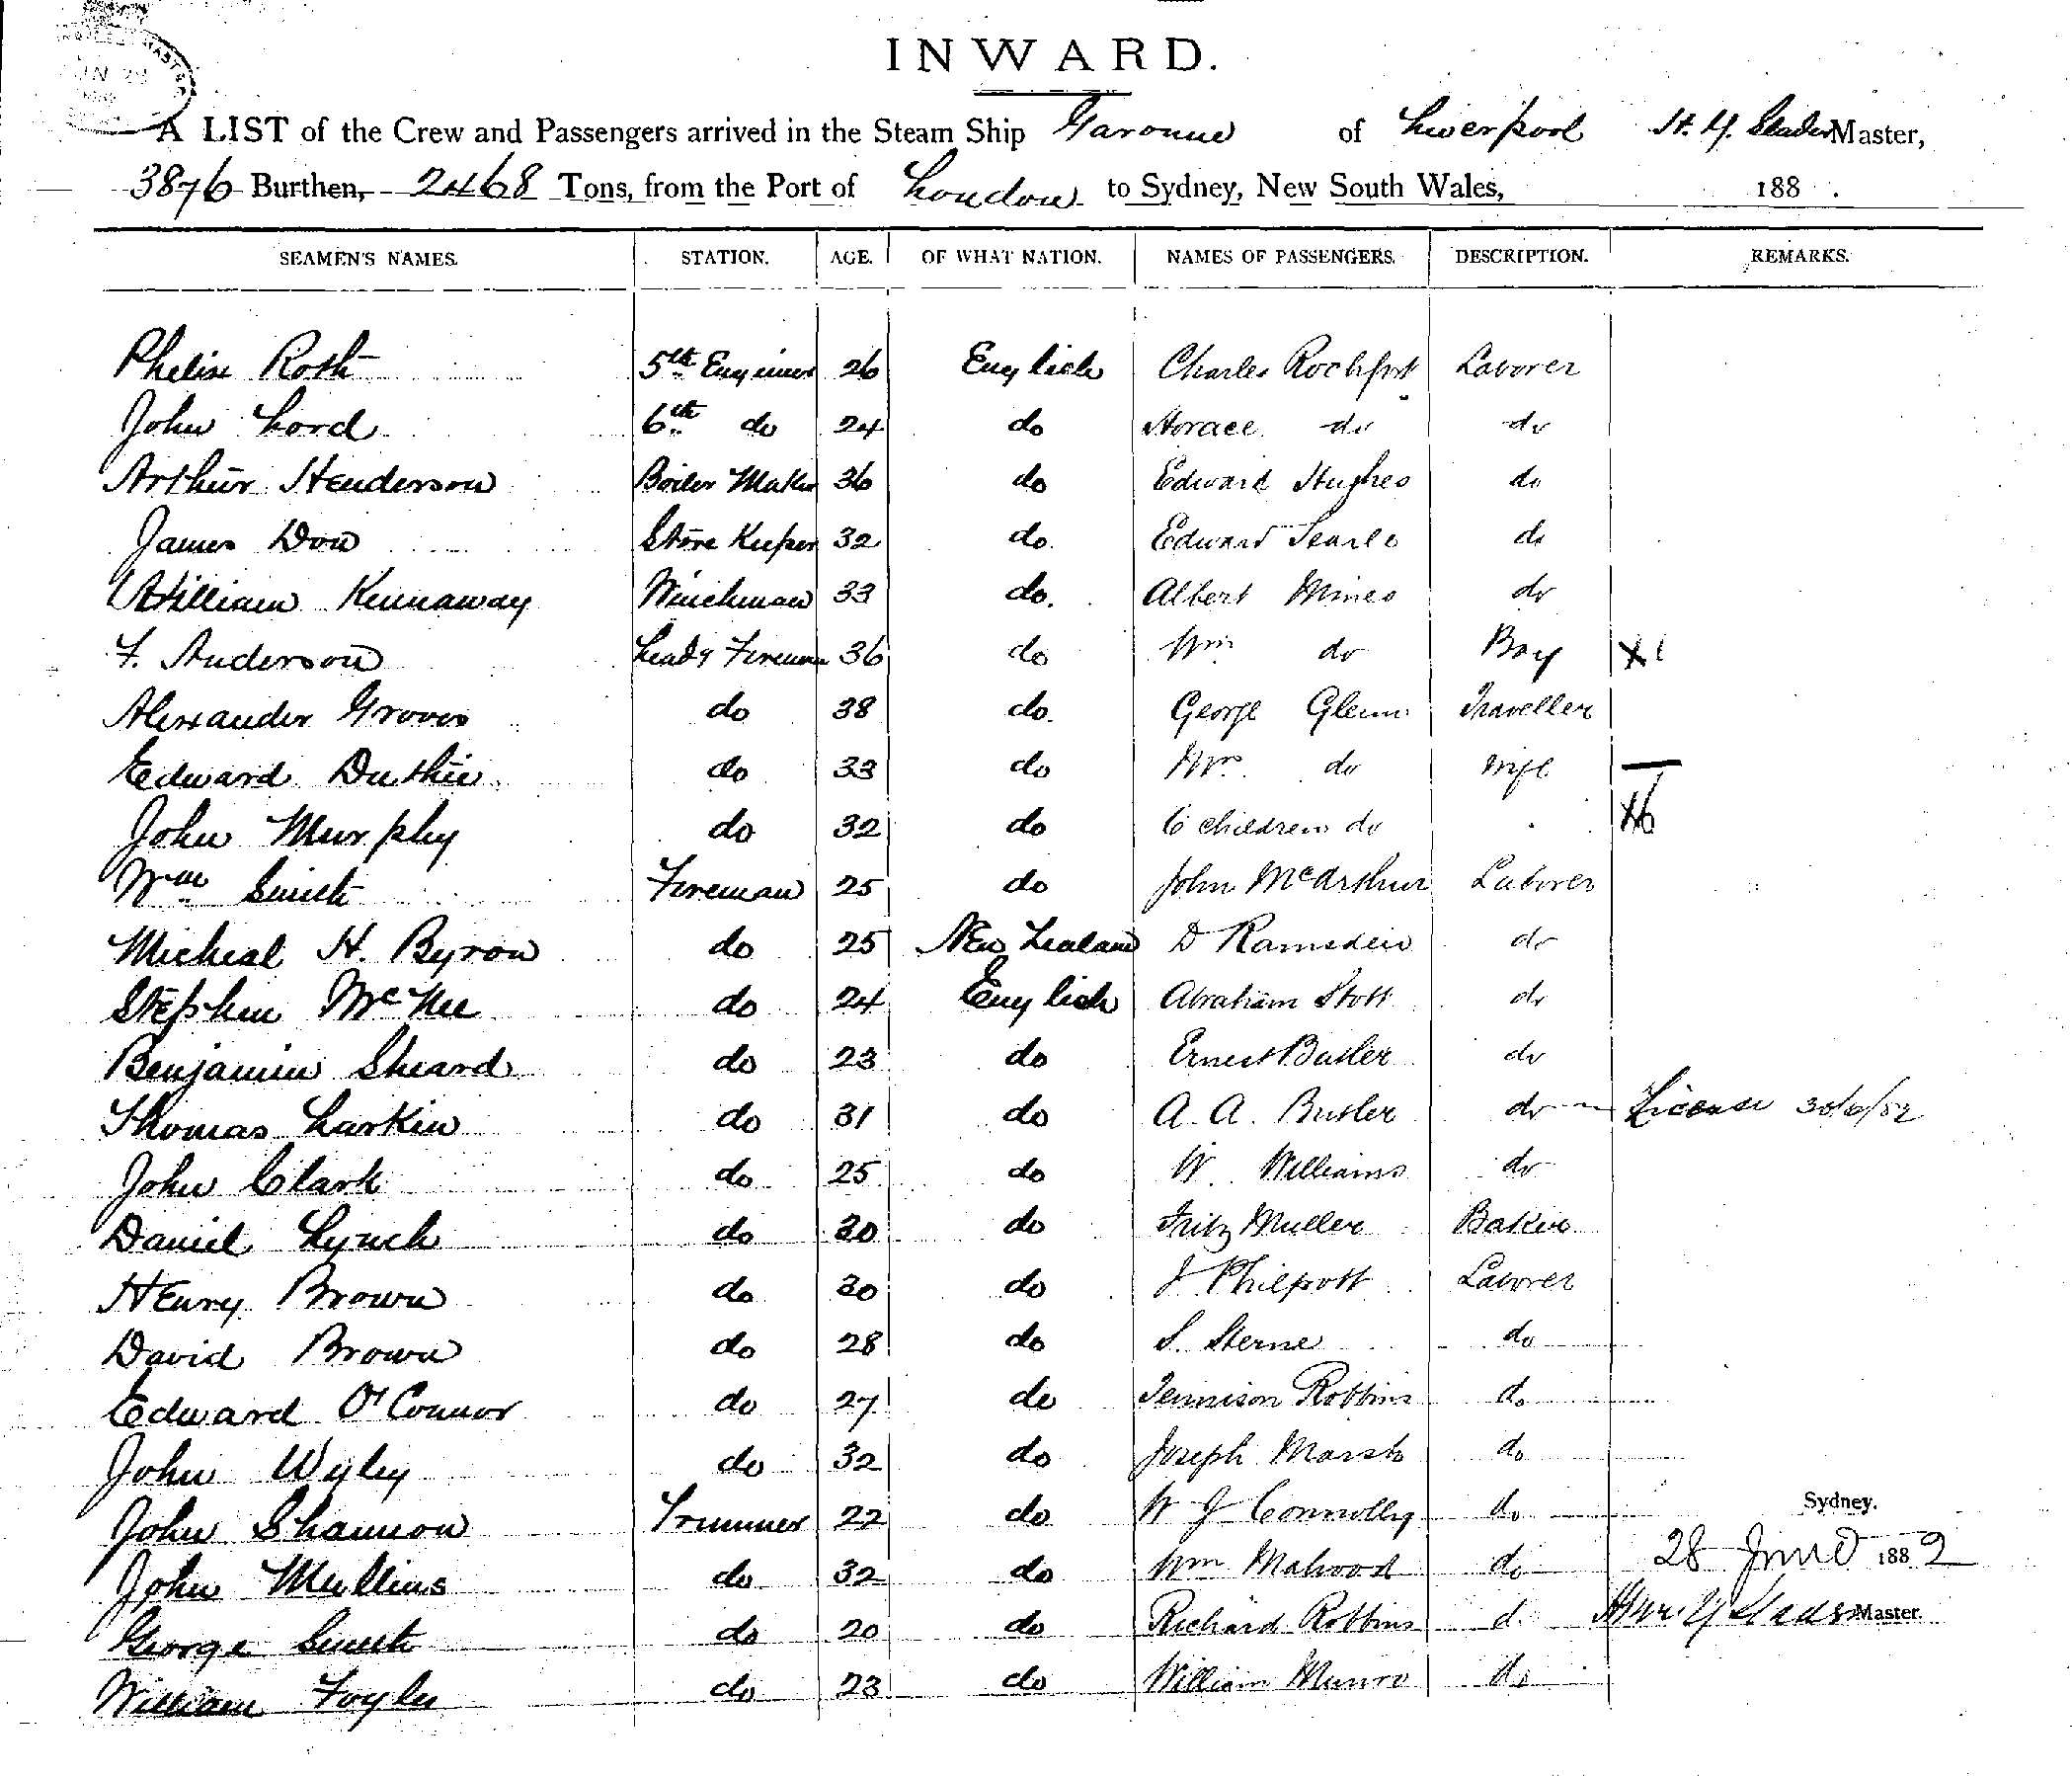 INWARD.
A LIST of the Crew and Passengers arrived in the Steam Ship Garonne of Liverpool H. Y. Slader Master,
3876 Burthen, 2468 Tons, from the Port of London to Sydney, New South Wales, 188 .
SEAMEN'S NAMES. STATION. AGE. OF WHAT NATION. NAMES OF PASSENGERS. DESCRIPTION. REMARKS.
Roth 5th Engineer 26 English Charles Rochfort Laborer
John Lord 6th do 24 do Horace do do
Arthur Henderson Boiler Maker 36 do Edward Hughes do
James Dow Store Keeper 32 do. Edward Searle do
William Kennaway Winchman 33 do. Albert Mines do
F. Anderson Leadg Fireman 36 do Wm do Boy X1
Alexander Groves do 38 do. George Glenn Traveller
Edward Duthie do 33 do Mrs do wife
John Murphy do 32 do 6 children do X6
Wm Smith Fireman 25 do John McArthur Laborer
Micheal H. Byron do 25 New Zealand D Ramsden do
Stephen McKee do 24 English Abraham Stott do
Benjamin Sheard do 23 do Ernest Butler do
Thomas Larkin do 31 do A. A. Butler do License 30/6/82
John Clark do 25 do W. Williams do
Daniel Lynch do 30 do Fritz Muller Baker
Henry Brown do 30 do J Philpott Laborer
David Brown do 28 do S. Sterne do
Edward O'Connor do 27 do Tennison Robbins do
John Wyley do 32 do Joseph Marsh do
John Shannon Trimmer 22 do W J Connolly do
Sydney.
John Mullins do 32 do Wm Malwood do 28 June 1882
George Smith do 20 do Richard Robbins do Master.
William Foyle do 23 do William Munro do